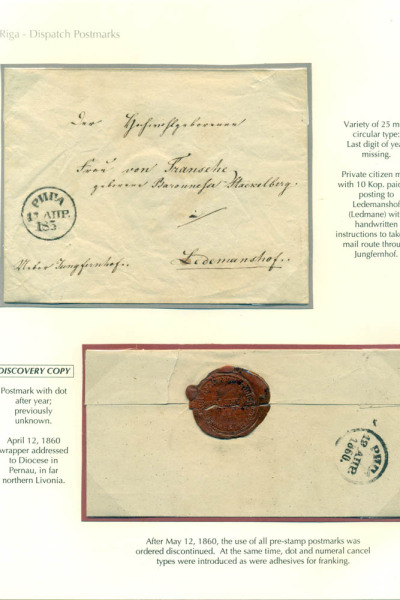 Riga - Dispatch Postmarks
Der Hochwohlgeborenen
Frau von Transehe
geborene Baronnesse Stackelberg.
in
Ueber Jungfernhof.
Ledemanshof.
РИГА
АПР.
185
Variety of 25 m
circular type:
Last digit of yea
missing.
Private citizen m
with 10 Kop. paid
posting to
Ledemanshof
(Ledmane) wit
handwritten
instructions to tak
mail route throu
Jungfernhof.
DISCOVERY COPY
Postmark with dot
after year;
previously
unknown.
April 12, 1860
wrapper addressed
to Diocese in
Pernau, in far
northern Livonia.
РИГА
12 АПР.
1860.
After May 12, 1860, the use of all pre-stamp postmarks was
ordered discontinued. At the same time, dot and numeral cancel
types were introduced as were adhesives for franking.